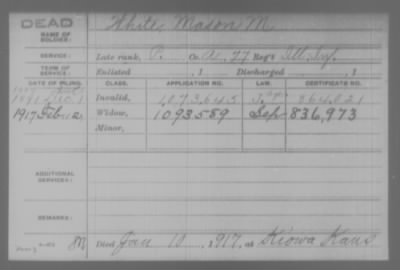 DEAD
NAME OF SOLDIER:
White, Mason M.
SERVICE:
Late rank, P. Co. A, 77 Reg't Ill. Inf.
TERM OF SERVICE:
Enlisted , 1 Discharged , 1
DATE OF FILING. CLASS. APPLICATION NO. LAW. CERTIFICATE NO.
Invalid,
1917 Feb. Widow, 1093589 836,973
Minor,
ADDITIONAL SERVICES:
REMARKS:
Died Jan 10, 1917, at Kiowa Kans